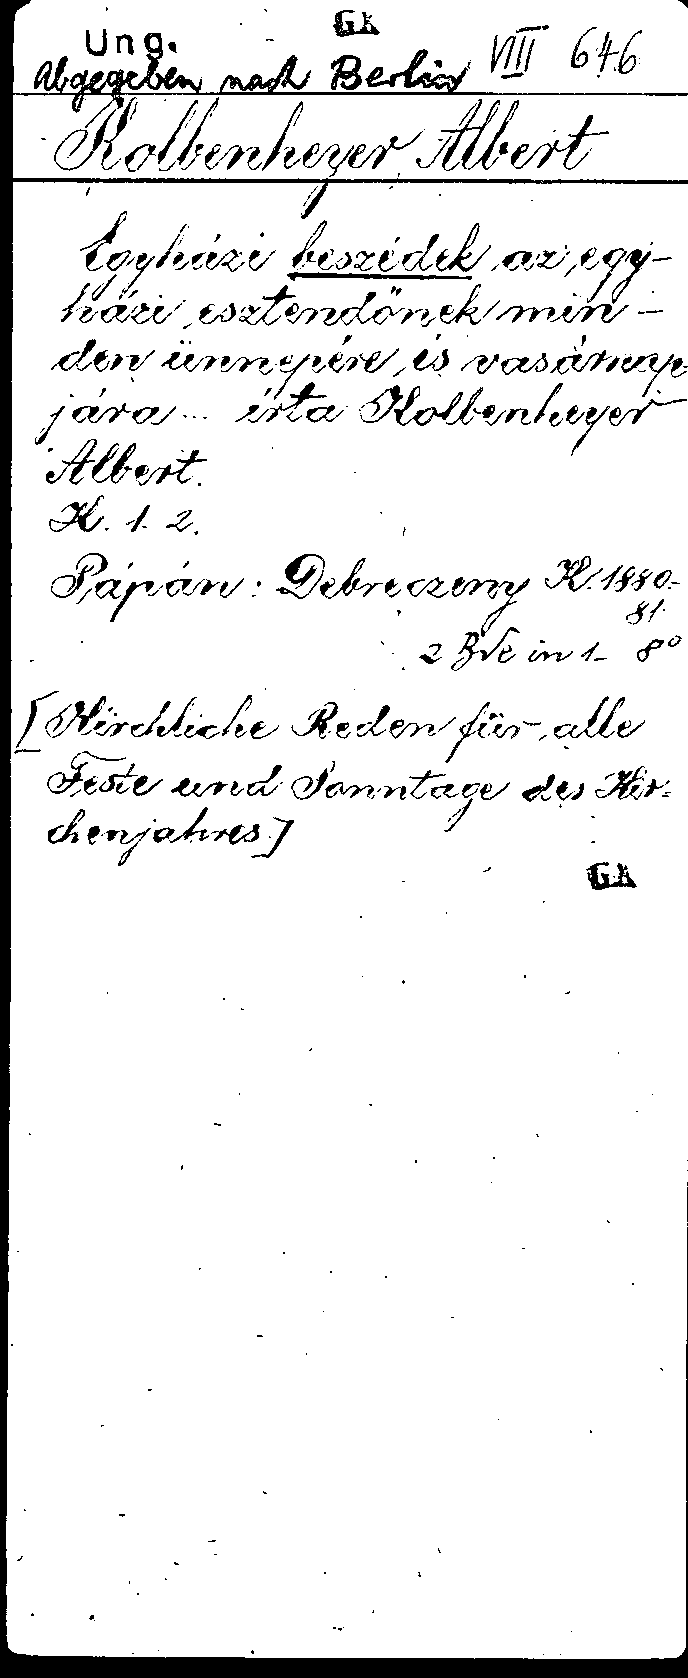 GK
Ung.
Abgegeben nach Berlin VIII 646
Kolbenheyer Albert
Egyházi beszédek az egy-
házi esztendőnek min-
den ünnepére és vasárnap
jára... írta Kolbenheyer
Albert.
K. 1. 2.
Pápán: Debreczeny K. 1880-
81.
2 Bde in 1- 8°
[Kirchliche Reden für alle
Feste und Sonntage des Kir-
chenjahres]
GK